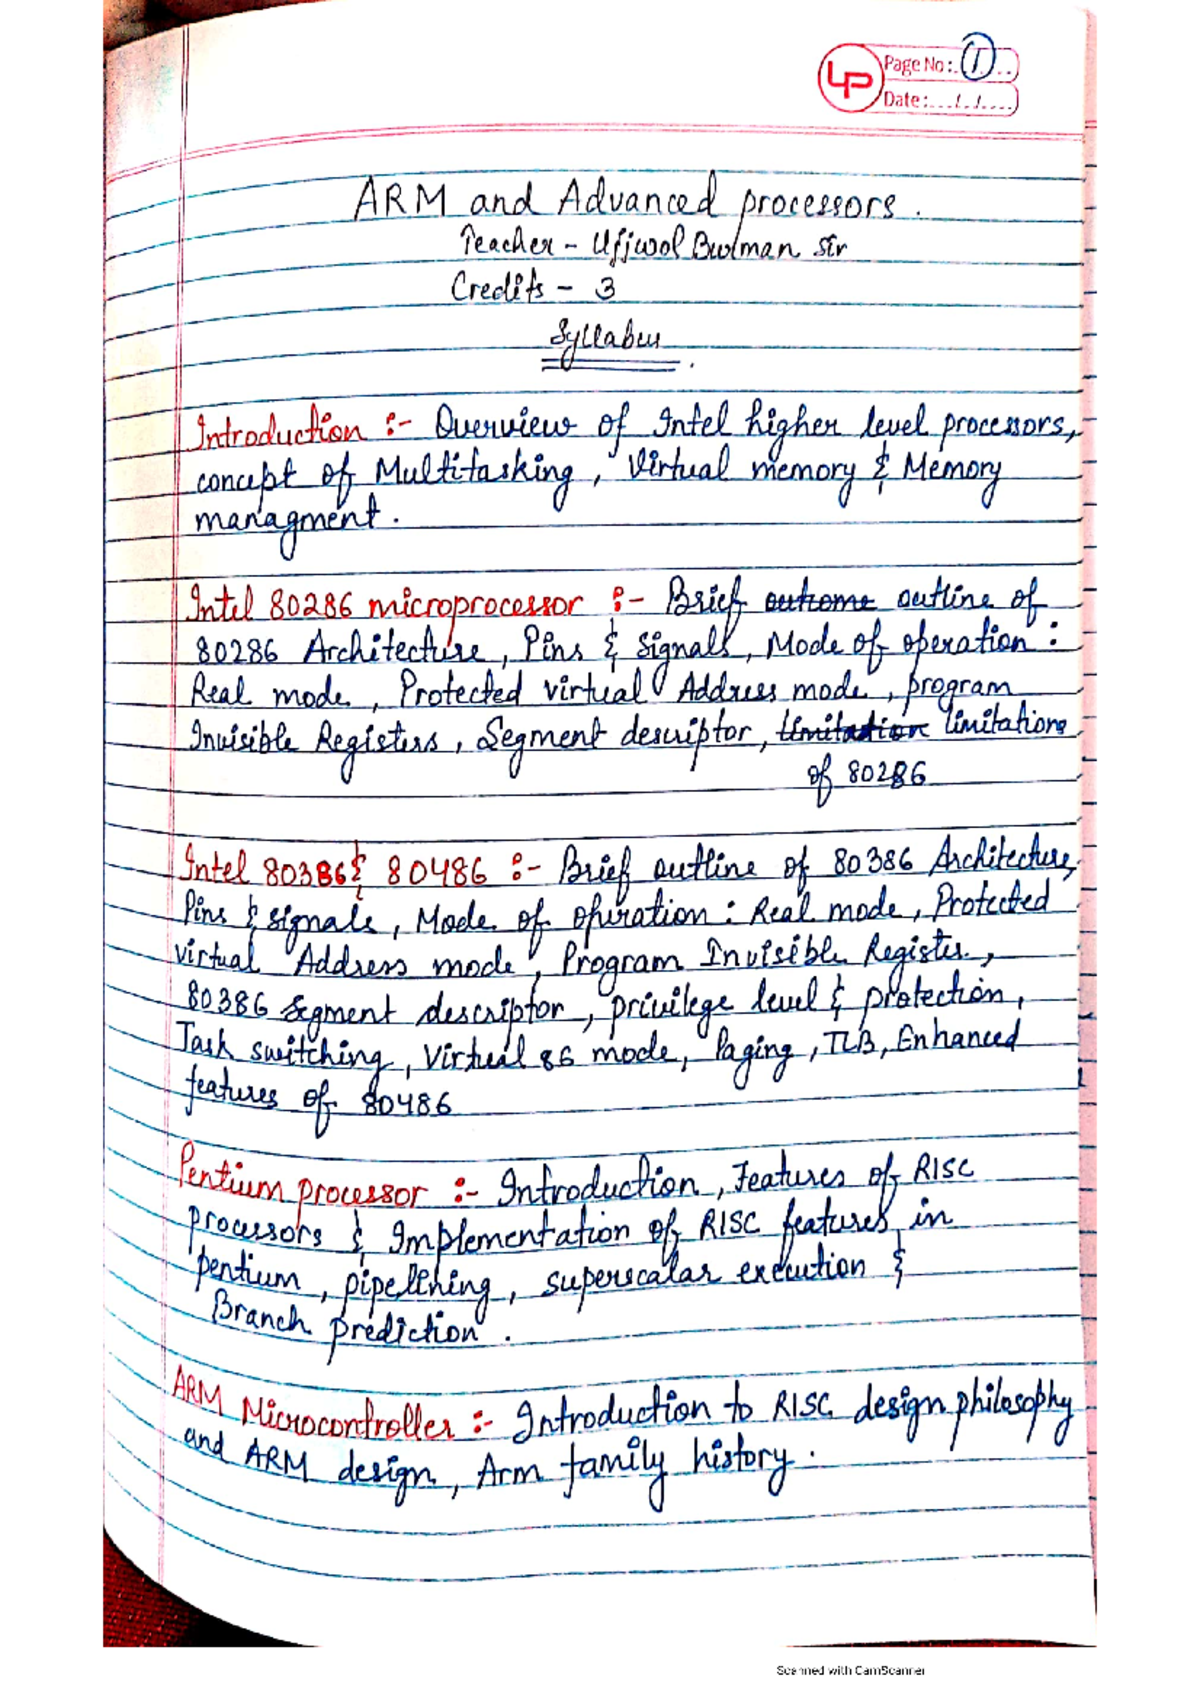 LP Page No: 1
Date: / /
ARM and Advanced processors.
Teacher - Ujjwol Sir
Credits - 3
Syllabus
Introduction :- Overview of Intel higher level processors,
concept of Multitasking, Virtual memory & Memory
managment.
Intel 80286 microprocessor :- Brief outcome outline of
80286 Architecture, Pins & signals, Mode of operation :
Real mode, Protected virtual Address mode, program
Invisible Registers, Segment descriptor, limitation limitations
of 80286
Intel 80386 & 80486 :- Brief outline of 80386 Architecture,
Pins & signals, Mode of operation : Real mode, Protected
virtual Address mode, Program Invisible Register,
80386 segment descriptor, privilege level & protection,
Task switching, Virtual 86 mode, Paging, TLB, Enhanced
features of 80486
Pentium processor :- Introduction, Features of RISC
processors & Implementation of RISC features in
pentium, pipelining, superscalar execution &
Branch prediction.
ARM Microcontroller :- Introduction to RISC design philosophy
and ARM design, Arm family history.
Scanned with CamScanner